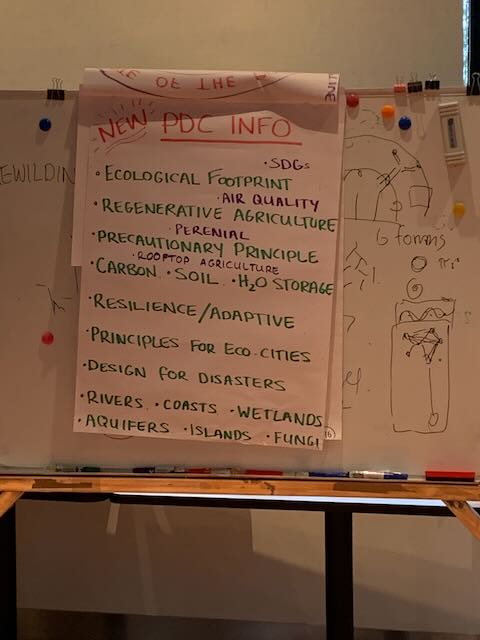 OF THE
NEW PDC INFO
• SDGs
• ECOLOGICAL FOOTPRINT
• AIR QUALITY
• REGENERATIVE AGRICULTURE
• PERENIAL
• PRECAUTIONARY PRINCIPLE
• ROOFTOP AGRICULTURE
• CARBON • SOIL • H₂O STORAGE
• RESILIENCE/ADAPTIVE
• PRINCIPLES FOR ECO-CITIES
• DESIGN FOR DISASTERS
• RIVERS • COASTS • WETLANDS
• AQUIFERS • ISLANDS • FUNGI
16
EWILDIN